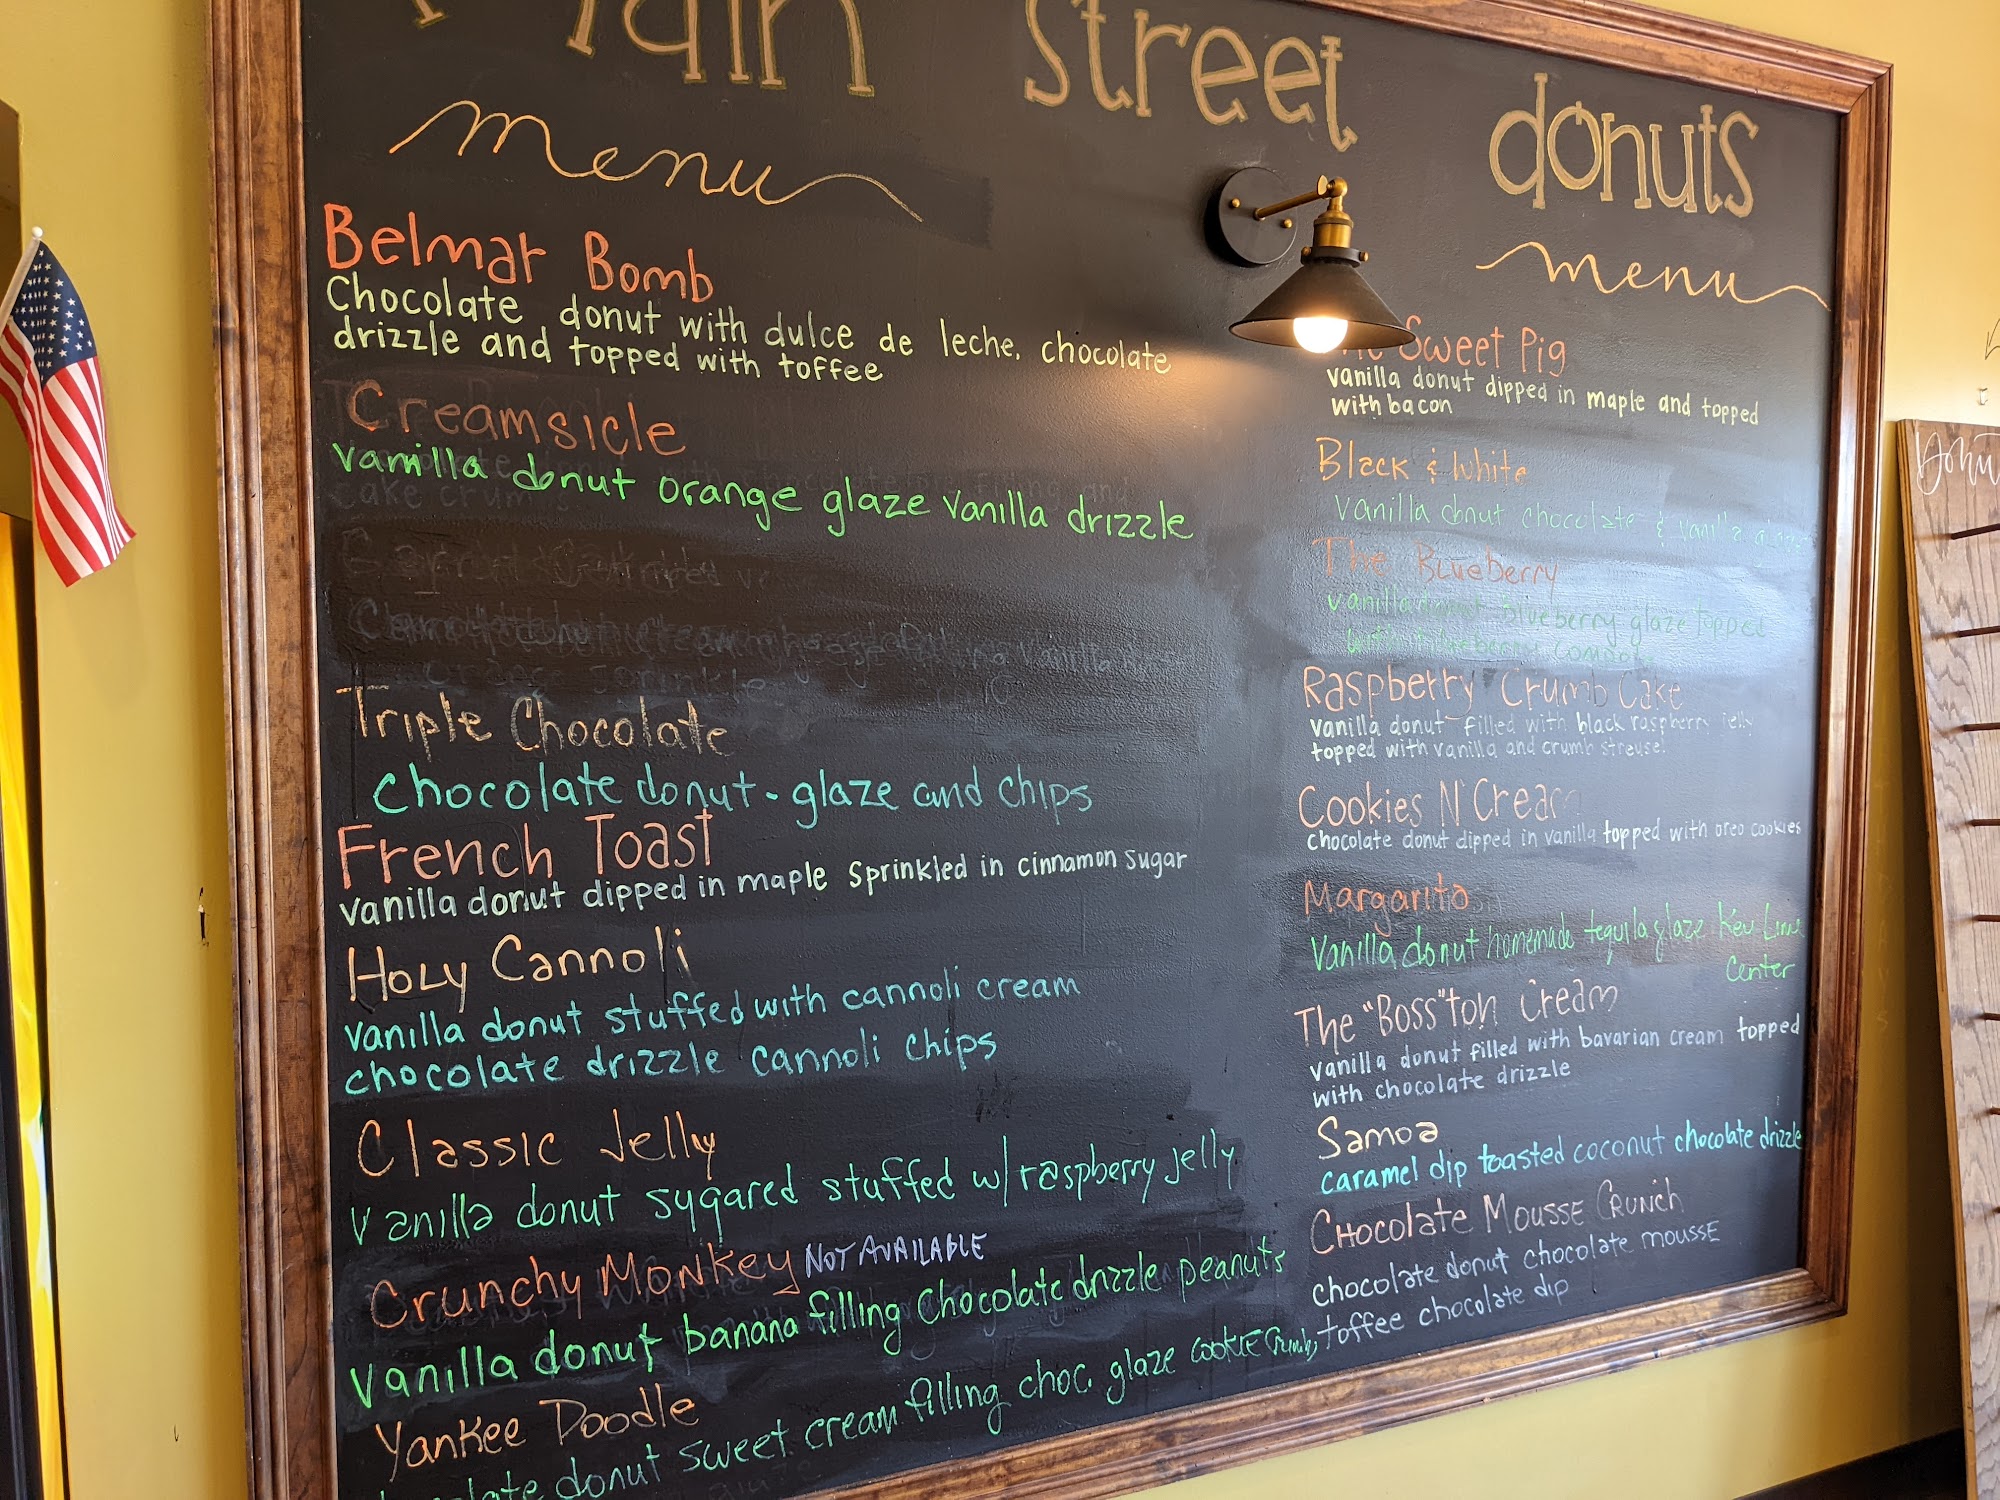 Main street donuts
menu
Belmar Bomb
Chocolate donut with dulce de leche. chocolate
drizzle and topped with toffee
Creamsicle
vanilla donut orange glaze vanilla drizzle
Triple Chocolate
chocolate donut - glaze and chips
French Toast
vanilla donut dipped in maple sprinkled in cinnamon sugar
Holy Cannoli
vanilla donut stuffed with cannoli cream
chocolate drizzle cannoli chips
Classic Jelly
vanilla donut sugared stuffed w/raspberry jelly
Crunchy Monkey NOT AVAILABLE
vanilla donut banana filling Chocolate drizzle peanuts
Yankee Doodle
donut sweet cream filling choc. glaze cookie crumbs
menu
Sweet Pig
vanilla donut dipped in maple and topped
with bacon
Black & White
vanilla donut chocolate & vanilla
The Blueberry
vanilla donut blueberry glaze topped
with blueberry
Raspberry Crumb Cake
vanilla donut filled with black raspberry jelly
topped with vanilla and crumb streusel
Cookies N' Cream
chocolate donut dipped in vanilla topped with oreo cookies
Margarita
Vanilla donut homemade tequila glaze Key Lime
Center
The "Boss"ton Cream
vanilla donut filled with bavarian cream topped
with chocolate drizzle
Samoa
caramel dip toasted coconut chocolate drizzle
Chocolate Mousse Crunch
chocolate donut chocolate mousse
toffee chocolate dip